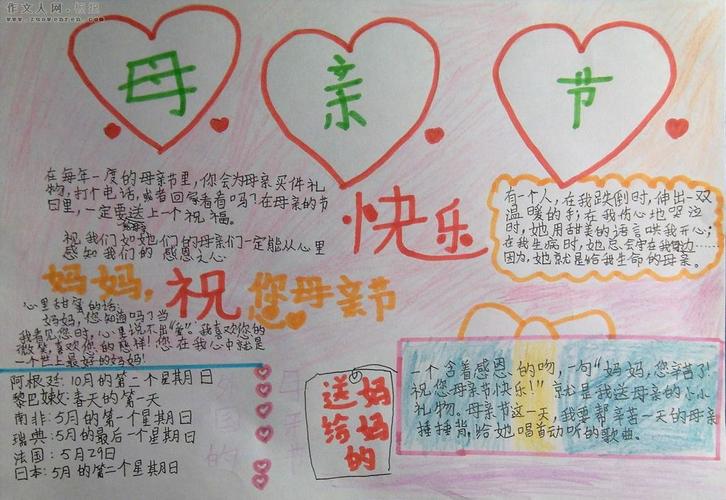 作文人网·标记
www.zuowenren.com
母 亲 节
在每年一度的母亲节里,你会为母亲买件礼
物,打个电话,或者回家看看吗?在母亲的节
日里,一定要送上一个祝福。
祝我们如她们的母亲们一定能从心里
感知我们的感恩之心
快乐
有一个人,在我跌倒时,伸出一双
温暖的手;在我伤心地哭泣
时,她用甜美的语言哄我开心;
在我生病时,她总会守在我身边……
因为,她就是给我生命的母亲。
妈妈,祝您母亲节
心里甜蜜的话:
妈妈,您知道吗?当
我看见您时,心里说不出"爱"。我喜欢您的
微笑喜欢您的慈祥!您在我心中就是
一个世上最好的妈妈!
阿根廷:10月的第二个星期日
黎巴嫩:春天的第一天
南非:5月的第一个星期日
瑞典:5月的最后一个星期日
法国:5月29日
日本:5月的第二个星期日
送给妈妈的
一个含着感恩的吻,一句"妈妈,您辛苦了!
祝您母亲节快乐!"就是我送母亲的小小
礼物。母亲节这一天,我要帮辛苦一天的母亲
捶捶背,给她唱首动听的歌曲。